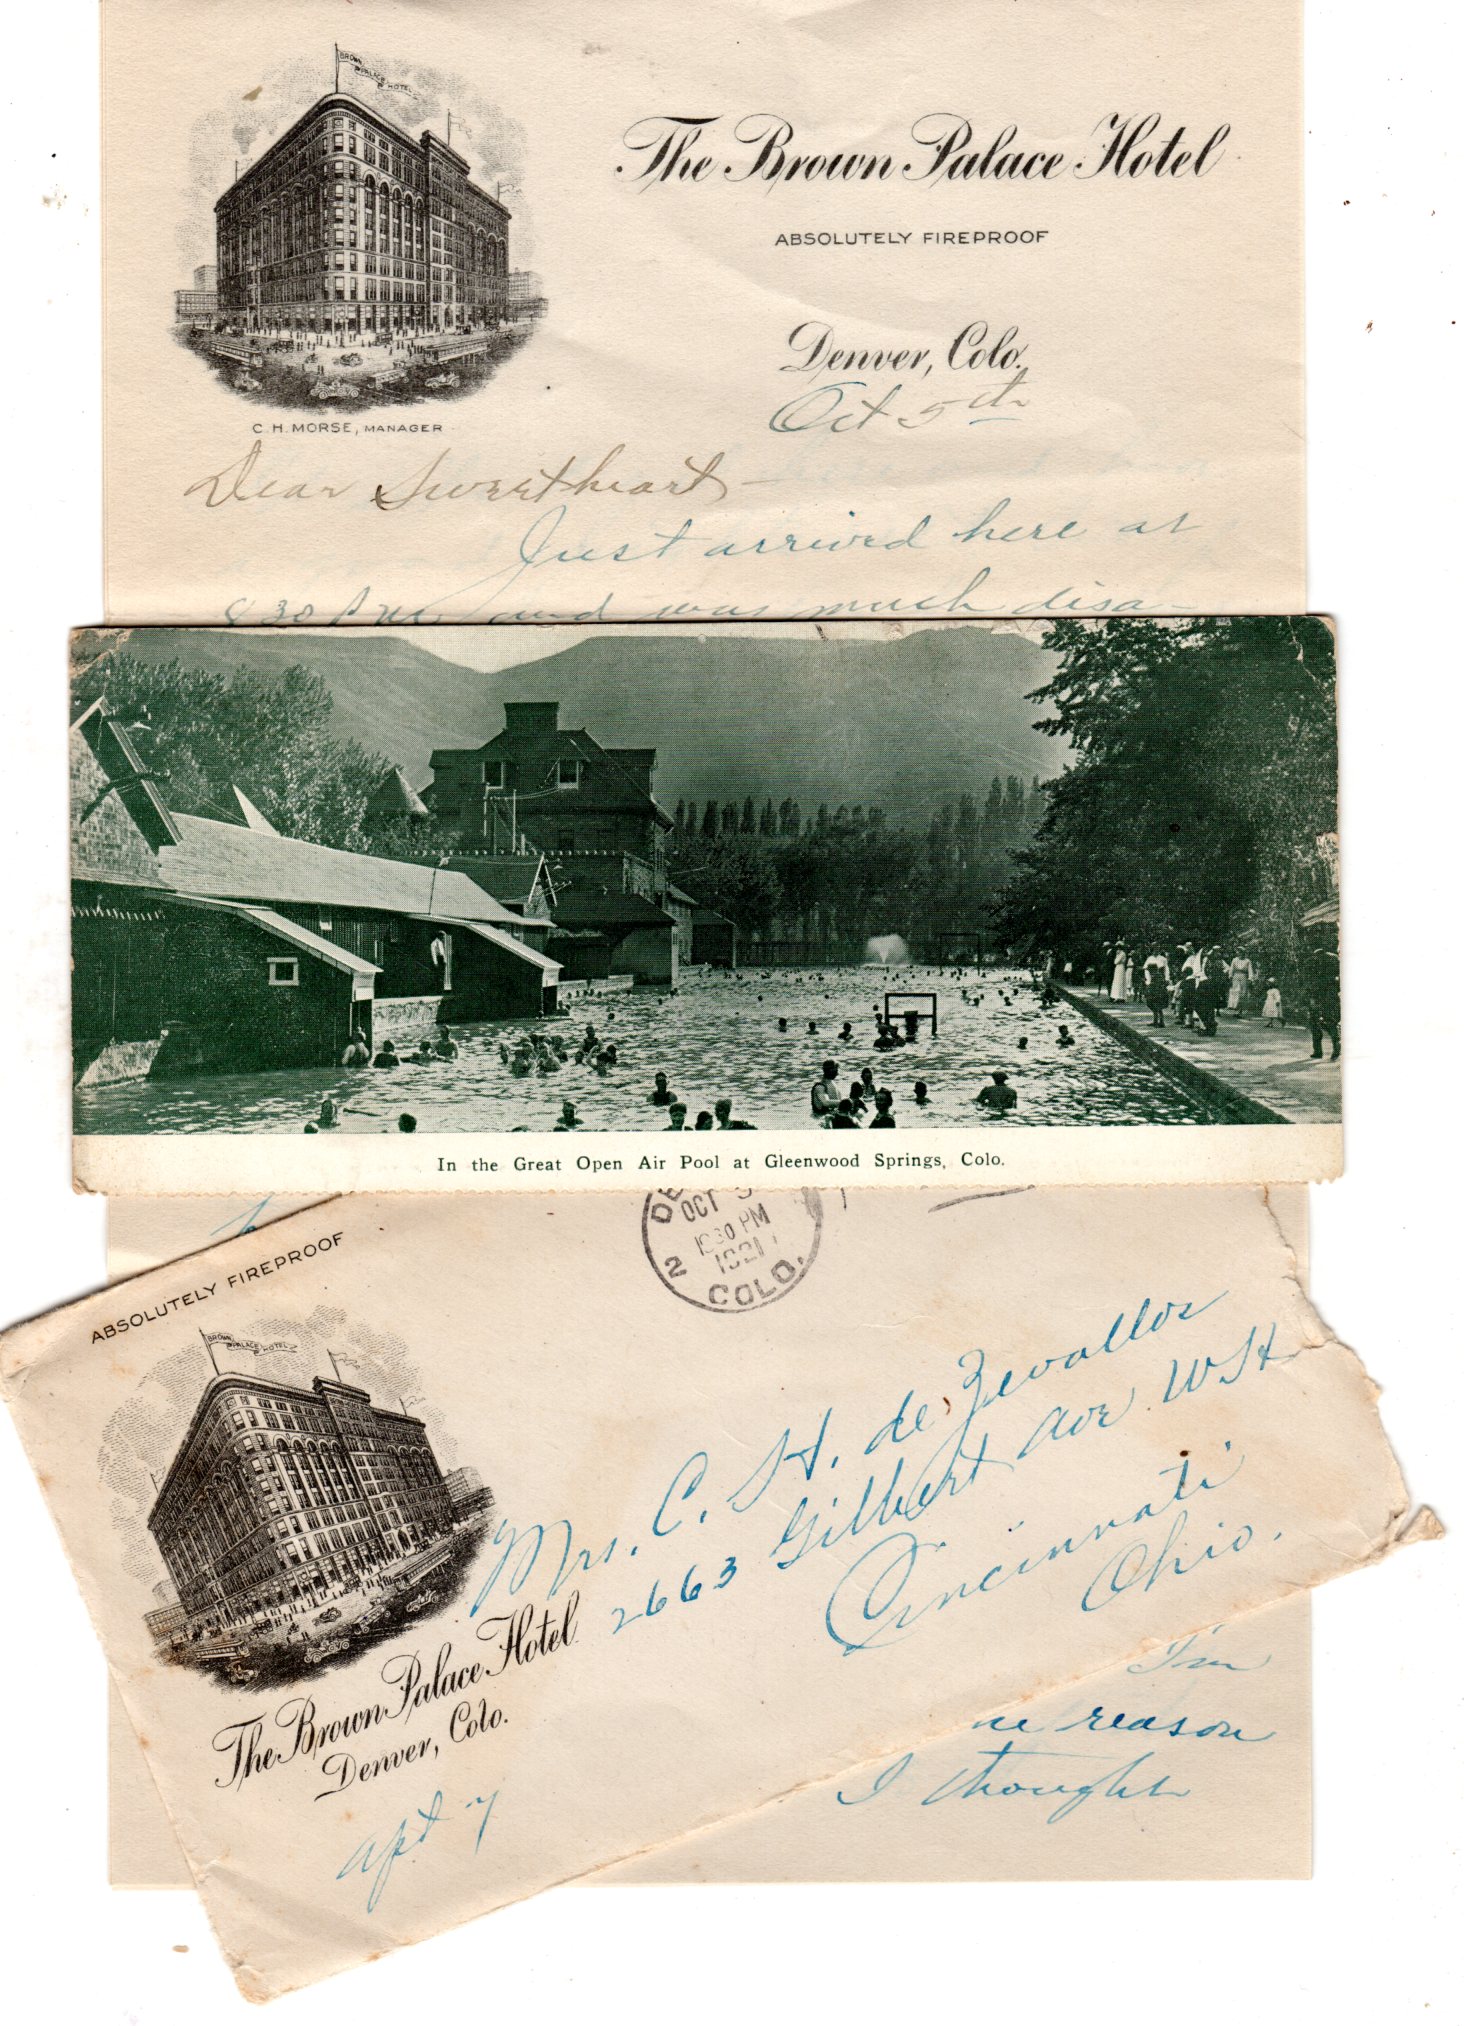 BROWN PALACE HOTEL
The Brown Palace Hotel
ABSOLUTELY FIREPROOF
Denver, Colo.
C. H. MORSE, MANAGER
Oct 5th
Dear Sweetheart -
Just arrived here at
8 30 P.M. and was much disa-
In the Great Open Air Pool at Gleenwood Springs, Colo.
DE
OCT 5
10 30 PM
1921
2 COLO.
ABSOLUTELY FIREPROOF
BROWN PALACE HOTEL
Mrs. C. H. de Zevallos
2663 Gilbert Ave WH
Cincinnati
Ohio.
The Brown Palace Hotel
Denver, Colo.
Apt 7
I'm
reason
I thought